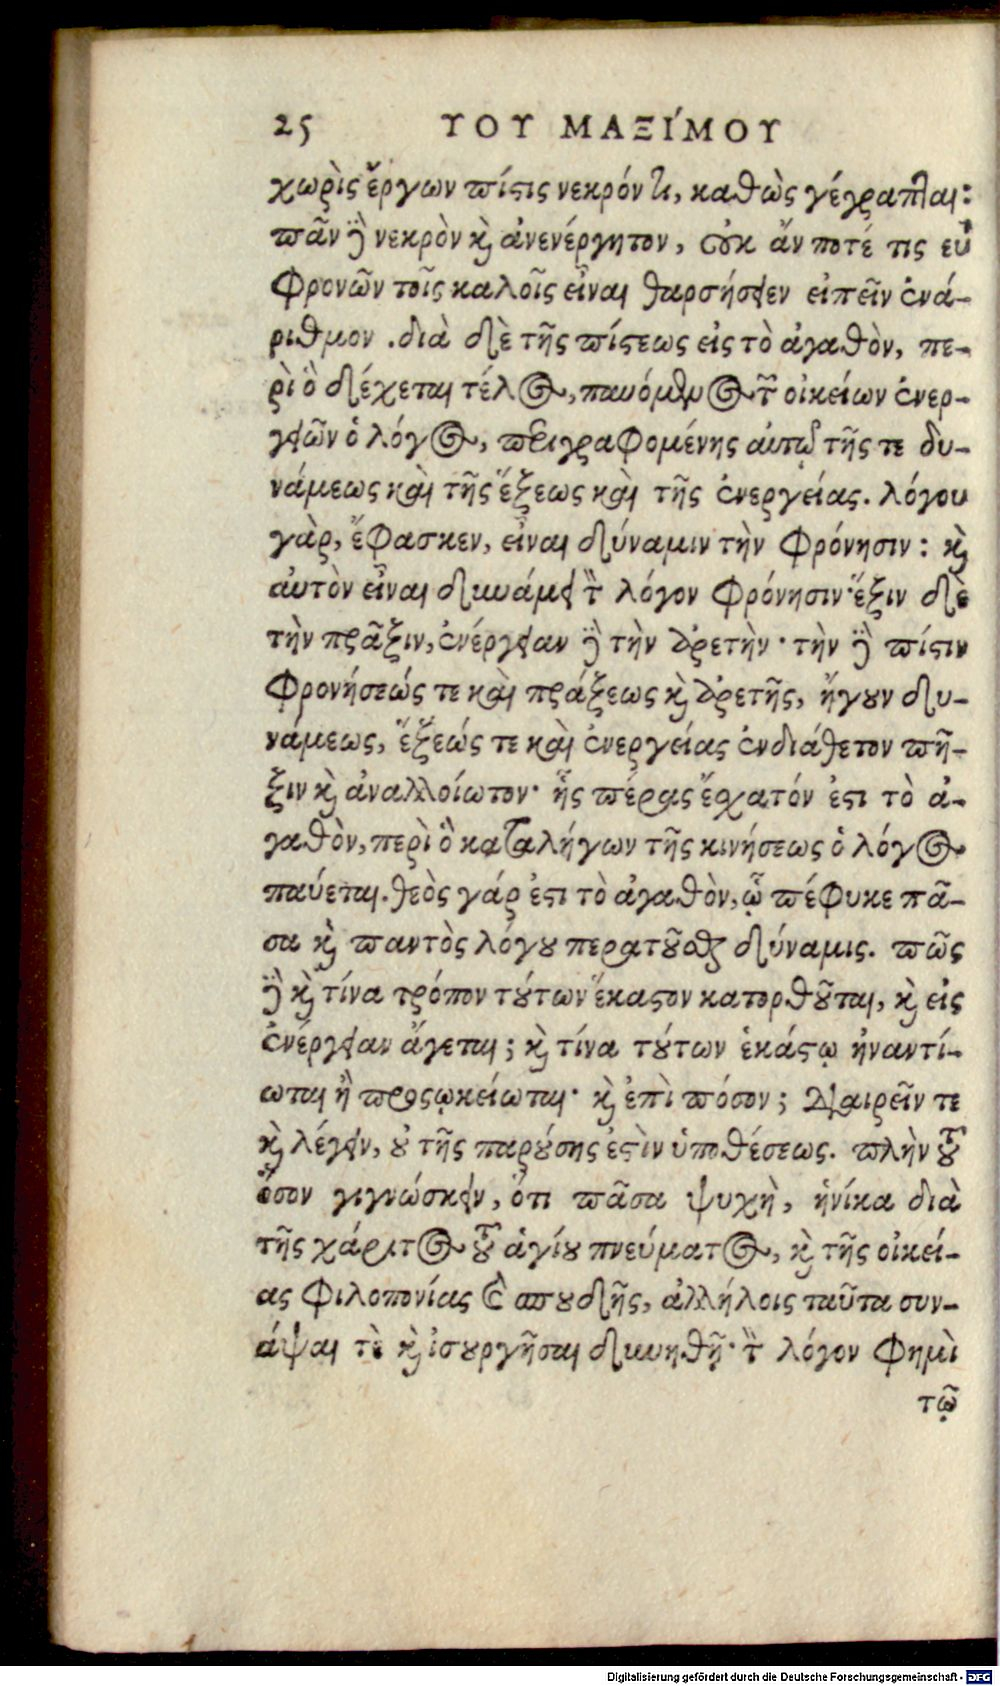 25 ΤΟΥ ΜΑΞΊΜΟΥ
χωρὶς ἔργων πίςις νεκρόν ἐςι, καθὼς γέγραπται:
πᾶν δὲ νεκρὸν καὶ ἀνενέργητον, οὐκ ἄν ποτέ τις εὖ
φρονῶν τοῖς καλοῖς εἶναι θαρσήσειεν εἰπεῖν ἐνά-
ριθμον. διὰ δὲ τῆς πίςεως εἰς τὸ ἀγαθὸν, πε-
ρὶ ὃ δέχεται τέλος, παυόμενος τῶν οἰκείων ἐνερ-
γειῶν ὁ λόγος, περιγραφομένης αὐτῷ τῆς τε δυ-
νάμεως καὶ τῆς ἕξεως καὶ τῆς ἐνεργείας. λόγου
γὰρ, ἔφασκεν, εἶναι δύναμιν τὴν φρόνησιν: καὶ
αὐτὸν εἶναι δυνάμει τὸν λόγον φρόνησιν· ἕξιν δὲ
τὴν πρᾶξιν, ἐνέργειαν δὲ τὴν ἀρετὴν· τὴν δὲ πίςιν
φρονήσεώς τε καὶ πράξεως καὶ ἀρετῆς, ἤγουν δυ-
νάμεως, ἕξεώς τε καὶ ἐνεργείας ἐνδιάθετον πῆ-
ξιν καὶ ἀναλλοίωτον· ἧς πέρας ἔσχατόν ἐςι τὸ ἀ-
γαθὸν, περὶ ὃ καταλήγων τῆς κινήσεως ὁ λόγος
παύεται. θεὸς γάρ ἐςι τὸ ἀγαθὸν, ᾧ πέφυκε πᾶ-
σα καὶ παντὸς λόγου περατοῦσθαι δύναμις. πῶς
δὲ καὶ τίνα τρόπον τούτων ἕκαςον κατορθοῦται, καὶ εἰς
ἐνέργειαν ἄγεται; καὶ τίνα τούτων ἑκάςῳ ἠναντί-
ωται ἢ προςῳκείωται· καὶ ἐπὶ πόσον; διαιρεῖν τε
καὶ λέγειν, οὐ τῆς παρούσης ἐςὶν ὑποθέσεως. πλὴν τοῦ
ὅσον γιγνώσκειν, ὅτι πᾶσα ψυχὴ, ἡνίκα διὰ
τῆς χάριτος τοῦ ἁγίου πνεύματος, καὶ τῆς οἰκεί-
ας φιλοπονίας καὶ σπουδῆς, ἀλλήλοις ταῦτα συν-
άψαι τὲ καὶ ἰσουργῆσαι δυνηθῇ· τὸν λόγον φημὶ
τῷ
Digitalisierung gefördert durch die Deutsche Forschungsgemeinschaft - DFG